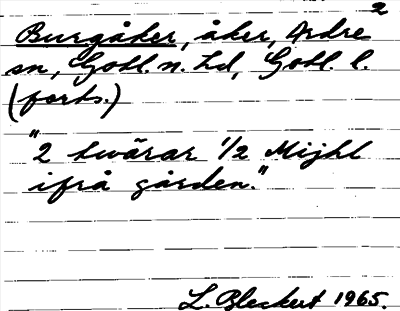 2
Burgåker, åker, Ardre
sn, Gotl. n. hd, Gotl. l.
(forts.)
"2 twärar 1/2 Mijhl
ifrå gården."
L. Bleckert 1965.